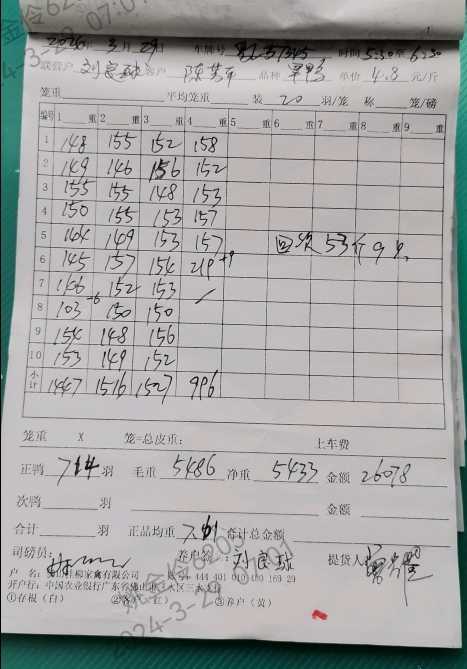 2026年 3月 29日 车牌号 时间 5:30至6:30
联营户 刘良球 客户 陈芳平 品种 单价 4.8 元/斤
笼重 平均笼重 装 20 羽/笼 称 笼/磅
编号 1 重 2 重 3 重 4 重 5 重 6 重 7 重 8 重 9 重
1 148 155 152 158
2 149 146 156 152
3 155 155 148 153
4 150 155 153 157
5 144 149 153 157 回次53斤9只
6 145 157 154 219 +9
7 146 152 153 /
8 103 -6 150 150
9 154 148 156
10 153 149 152
小计 1447 1516 1527 996
笼重 X 笼=总皮重: 上车费
正鸭 714 羽 毛重 5486 净重 5433 金额 26078
次鸭 羽 金额
合计 羽 正品均重 7.61 合计总金额
司磅员: 养户签 刘良球 提货人
户 名: 佛山佳柳家禽有限公司 444 401 010 400 169 29
开户行: 中国农业银行广东省佛山 大区三水支行
①存根(白) ②客户(红) ③养户(黄)